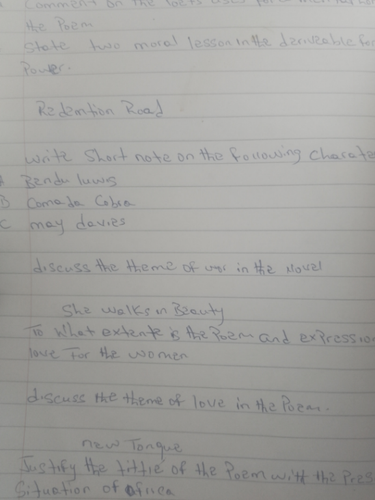 Comment on the Poets use of
the Poem
State two moral lesson in the deriveable
Power.
Redemtion Road
write short note on the following
A Bendu luwis
B Comada Cobra
C may davies
discuss the theme of war in the Novel
She walks in Beauty
To what extente is the Poem and
love for the women
discuss the theme of love in the Poem.
new Tongue
Justify the tittle of the Poem with the
Situation of Africa